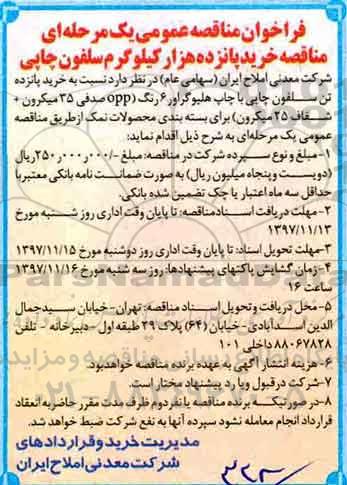 فراخوان مناقصه عمومی یک مرحله‌ای
مناقصه خرید پانزده هزار کیلوگرم سلفون چاپی
شرکت معدنی املاح ایران (سهامی عام) در نظر دارد نسبت به خرید پانزده
تن سلفون چاپی با چاپ هلیوگراور ۶ رنگ (opp صدفی ۳۵ میکرون +
شفاف ۲۵ میکرون) برای بسته بندی محصولات نمک ازطریق مناقصه
عمومی یک مرحله‌ای به شرح ذیل اقدام نماید:
۱-مبلغ و نوع سپرده شرکت در مناقصه: مبلغ -/۲۵۰،۰۰۰،۰۰۰ ریال
(دویست و پنجاه میلیون ریال) به صورت ضمانت نامه بانکی معتبر با
حداقل سه ماه اعتبار یا چک تضمین شده بانکی.
۲-مهلت دریافت اسناد مناقصه: تا پایان وقت اداری روز شنبه مورخ
۱۳۹۷/۱۱/۱۳
۳-مهلت تحویل اسناد: تا پایان وقت اداری روز دوشنبه مورخ ۱۳۹۷/۱۱/۱۵
۴-زمان گشایش پاکتهای پیشنهادها: روز سه شنبه مورخ ۱۳۹۷/۱۱/۱۶
ساعت ۱۶
۵-محل دریافت و تحویل اسناد مناقصه: تهران-خیابان سیدجمال
الدین اسدآبادی-خیابان (۶۴) پلاک ۳۹ طبقه اول-دبیرخانه - تلفن
۸۸۰۶۷۸۲۸ داخلی ۱۰۱
۶-هزینه انتشار آگهی به عهده برنده مناقصه خواهدبود.
۷-شرکت در قبول و یا رد پیشنهاد مختار است.
۸-در صورتیکه برنده مناقصه یا نفر دوم ظرف مدت مقرر حاضر به انعقاد
قرارداد انجام معامله نشود سپرده آنها به نفع شرکت ضبط خواهد شد.
مدیریت خرید و قراردادهای
شرکت معدنی املاح ایران